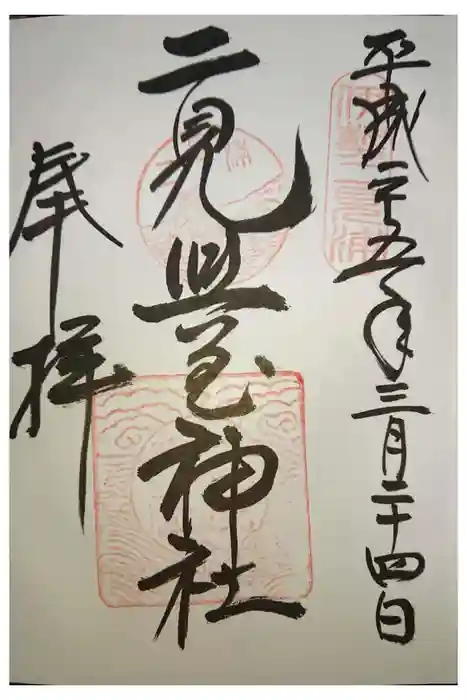 平成二十五年三月二十四日
伊勢二見浦
二見興玉神社
奉拝